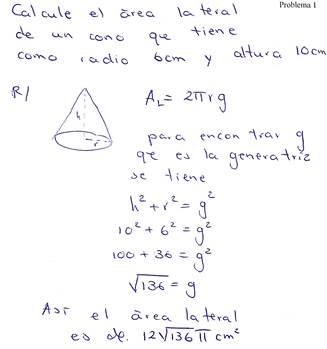 Problema 1
Calcule el área lateral
de un cono que tiene
como radio 6cm y altura 10cm
R/
h
r
A_L = 2πrg
para encontrar g
que es la generatriz
se tiene
h² + r² = g²
10² + 6² = g²
100 + 36 = g²
√136 = g
Así el área lateral
es de. 12√136 π cm²